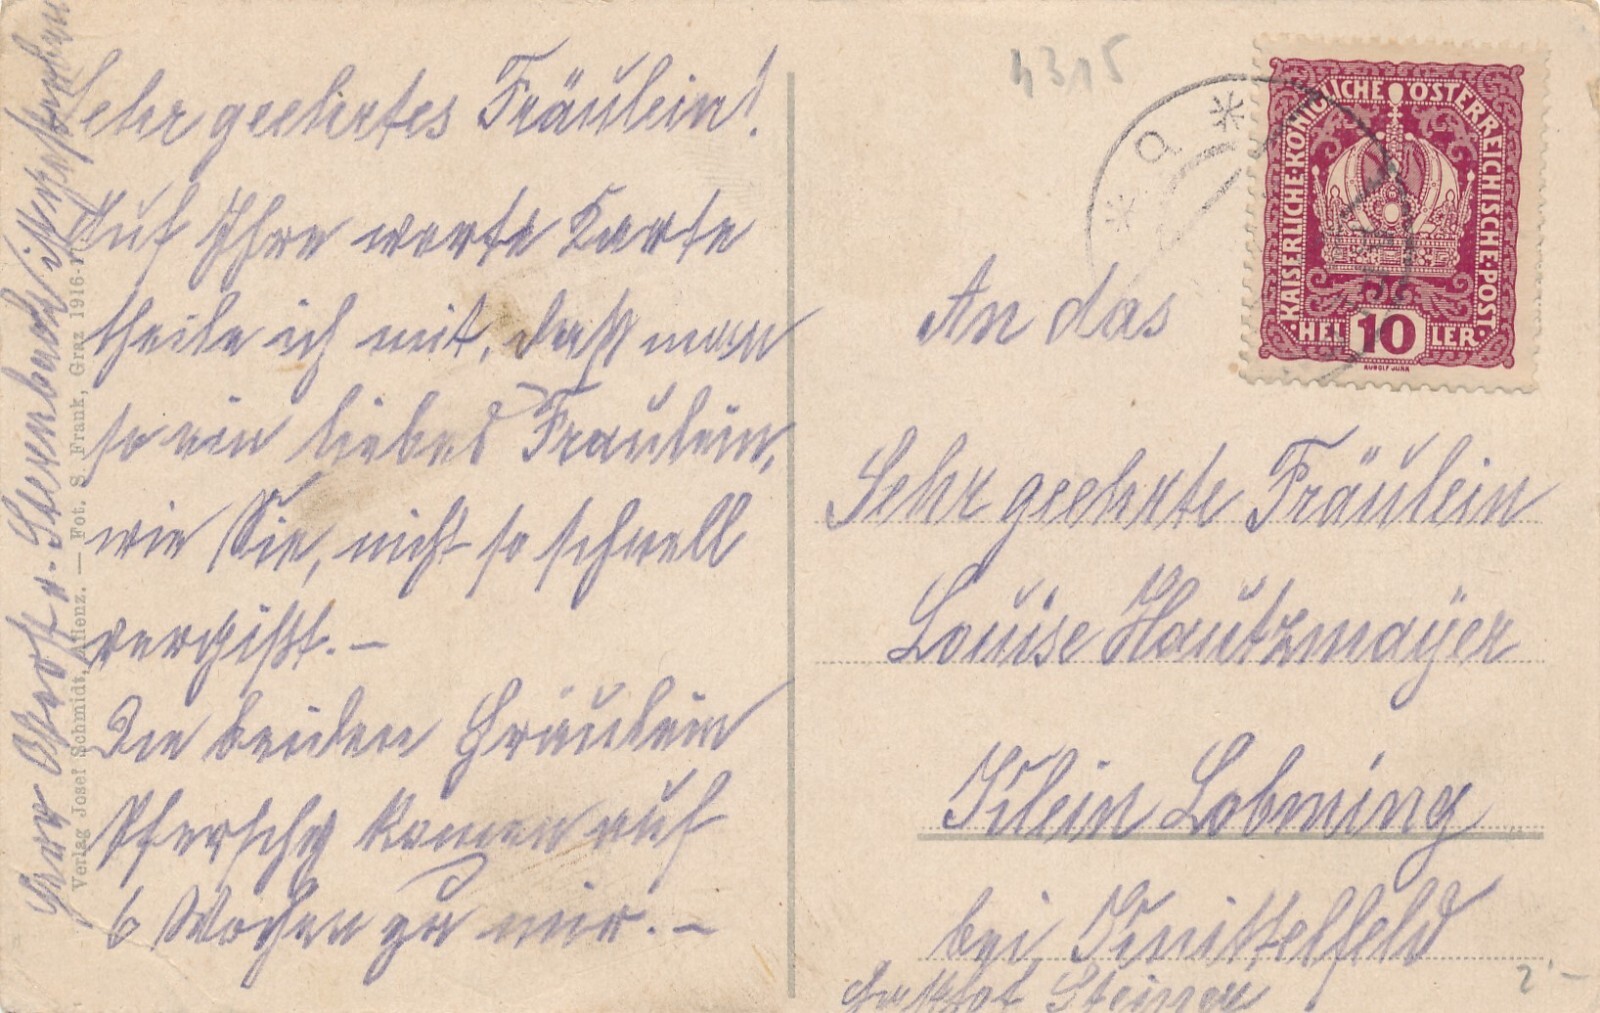 Sehr geehrtes Fräulein!
Auf Ihre werte Karte
theile ich mit, daß man
so ein liebes Fräulein,
wie Sie, nicht so schnell
vergißt.–
Die beiden Fräulein
Pferschy komen auf
6 Wochen zu mir.–
Herr v. Sternbach ist gestorben
Verlag Josef Schmidt, Aflenz. — Fot. S. Frank, Graz 1916
4315
KAISERLICHE·KÖNIGLICHE ÖSTERREICHISCHE·POST·
·HEL 10 LER·
RUDOLF JUNK
An das
Sehr geehrte Fräulein
Louise Hautzmayer
Klein Lobming
bei Knittelfeld
Gasthof Steirer
2·–